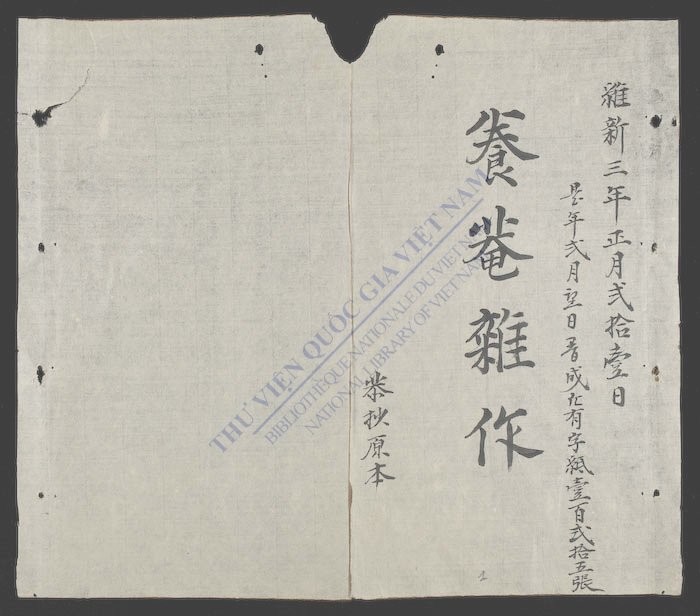 維新三年正月弍拾壹日
是年弍月望日書成凢有字紙壹百弍拾五張
養菴雜作
恭抄原本
THƯ VIỆN QUỐC GIA VIỆT NAM
BIBLIOTHÈQUE NATIONALE DU VIETNAM
NATIONAL LIBRARY OF VIETNAM
1